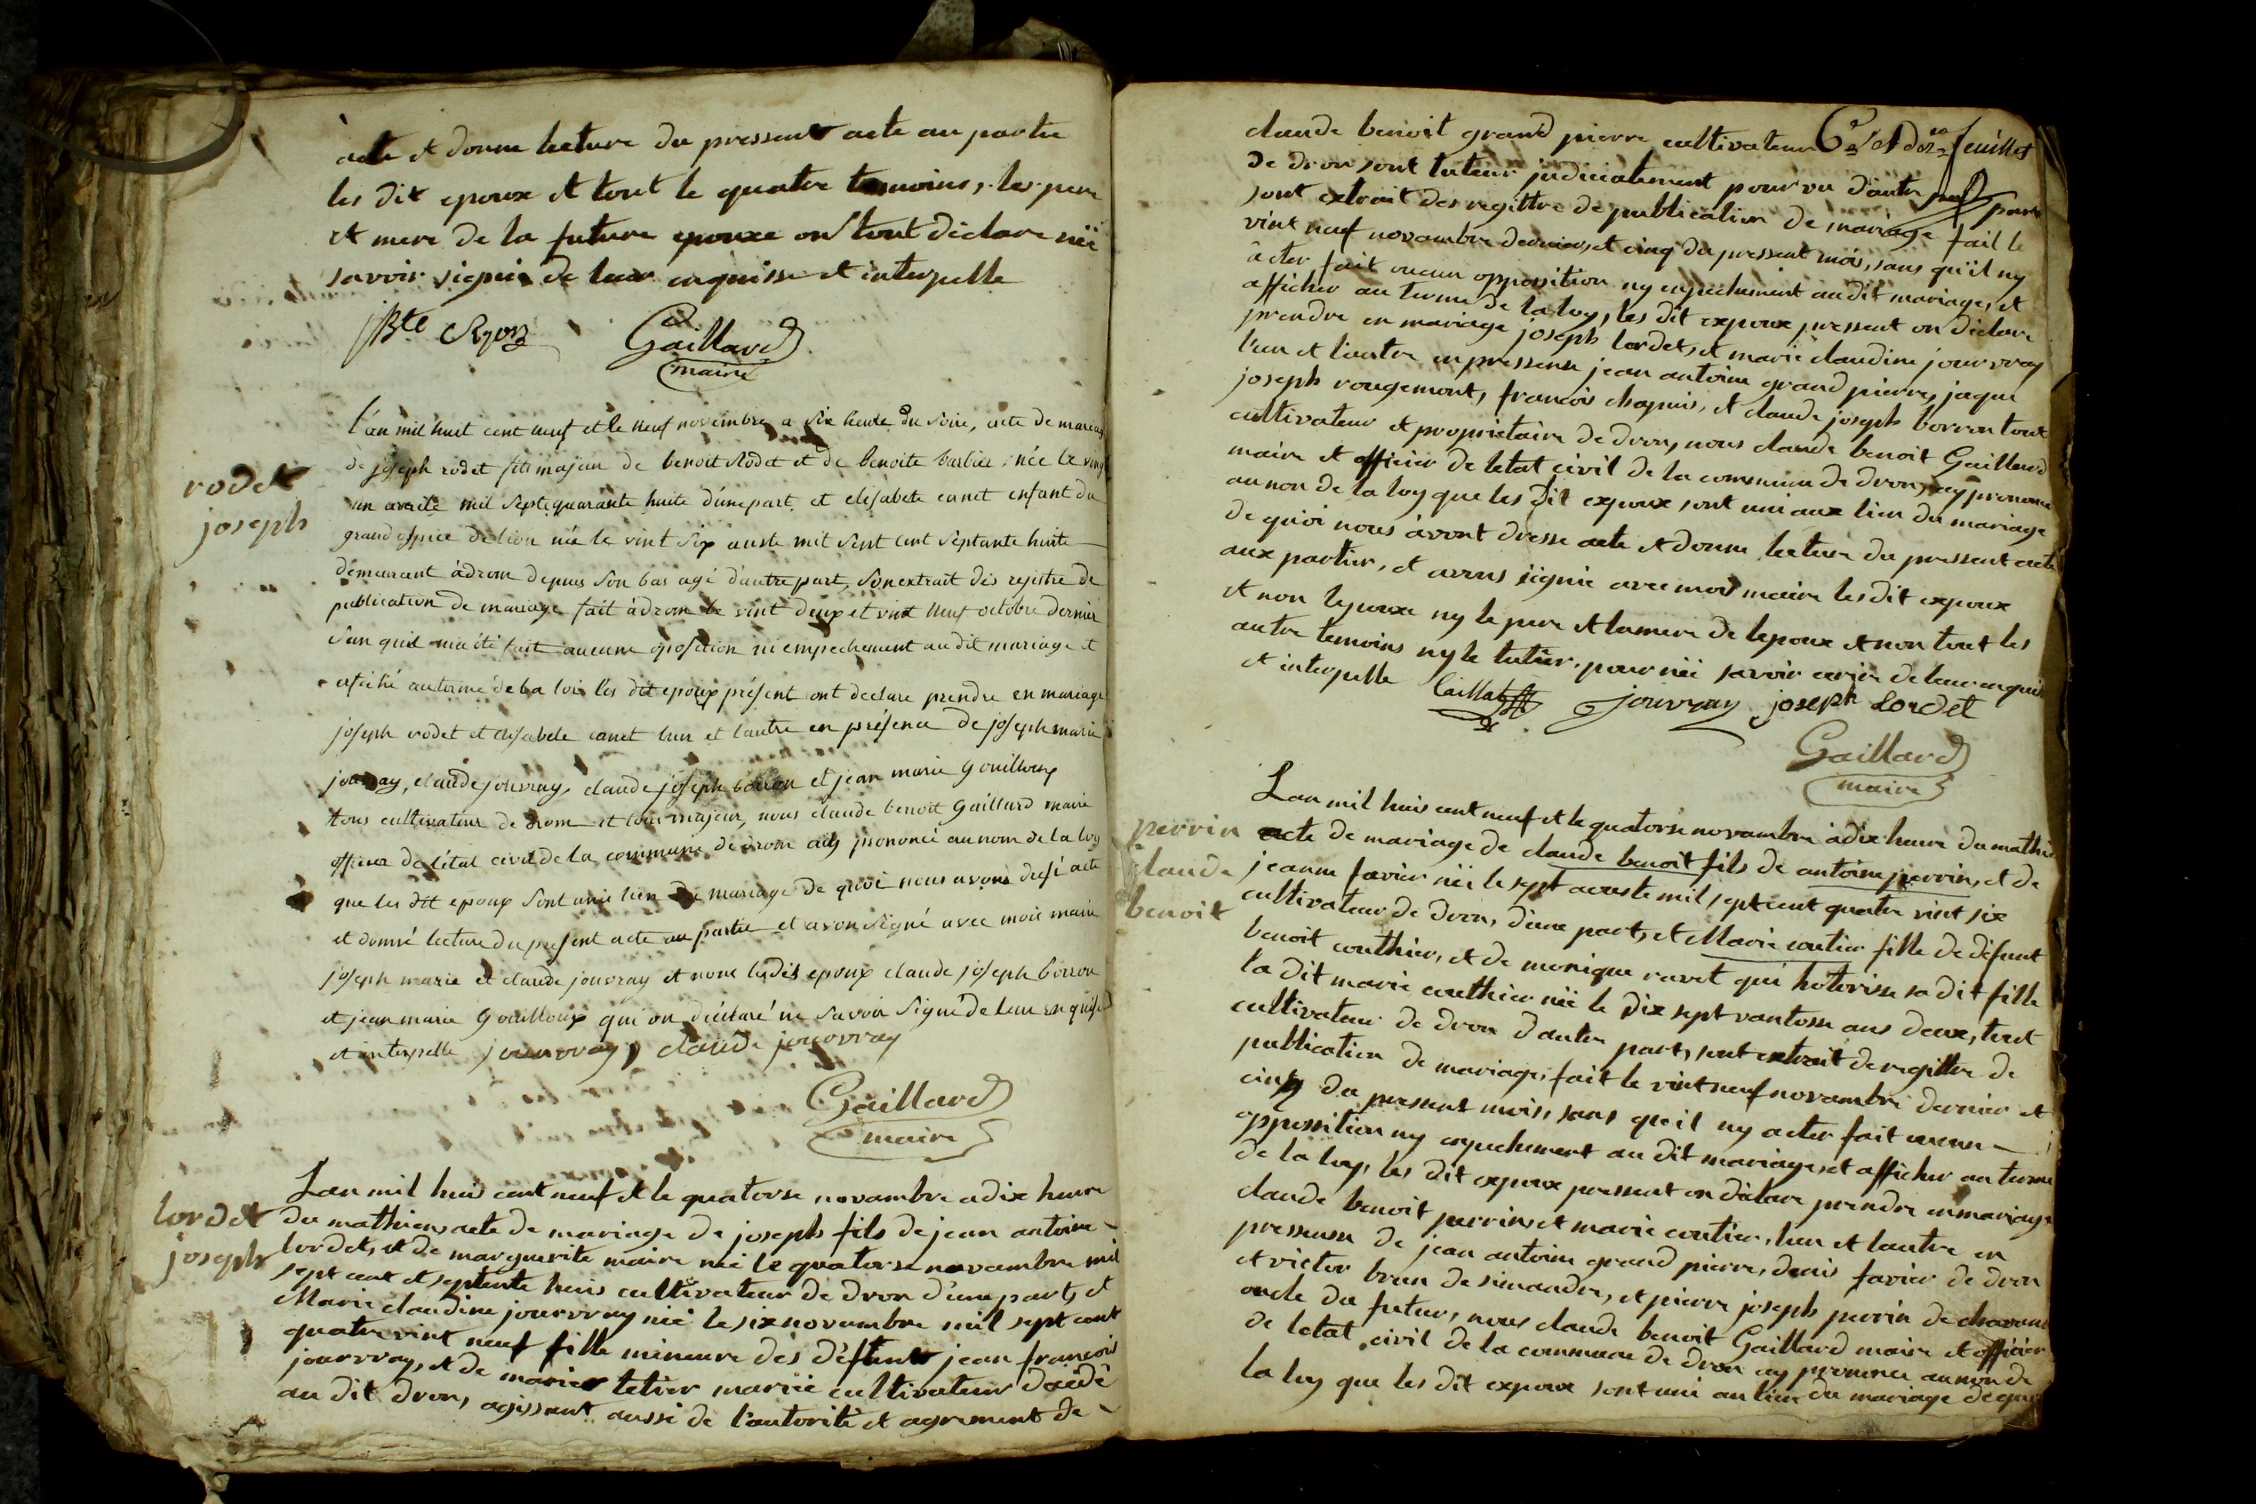 acte et donne lecture du pressant acte au partie
les dit epoux et tout le quatre temoins, les pere
et mere de la future epouxe on tout déclare néé
savoir signés de leur enquisse et interpelle
jBte Gaillard
maire
rodet
joseph
l'an mil huit cent neuf et le neuf novembre a six heure du soire, acte de mariage
de joseph rodet fils majeur de benoit Rodet et de benoite barbier, née le vingt
un avrile mil septe quarante huite d'une part et elisabete canet enfant du
grand ospice de lion née le vint six auste mil sept cent septante huite
demeurant à drom depuis son bas agé d'autre part, son extrait des rejistre de
publication de mariage fait à drom le vint deux et vint neuf octobre dernier
san quil nia été fait aucune oposition ni empechement au dit mariage et
afiché au terme de la loi les dit epoux présent ont declare prendre en mariage
joseph rodet et elisabete canet lun et lautre en présence de joseph marie
jouvray, claude jouvray, claude joseph borron et jean marie gouilloux
tous cultivateur de drom et tous majeur, nous claude benoit Gaillard maire
officier de létat civil de la commune de drom aiy prononcé au nom de la loy
que les dit epoux sont unie lien du mariage de quoi nous avons dresé acte
et donné lecture du present acte au partie et avon signé avec moie maire
joseph marie et claude jouvray et nonc les dit epoux claude joseph borron
et jean marie gouilloux qui on déclaré ne savoir signé de leur enquise
et interpelle jouvray, claude jouvray
Gaillard
maire
lordet
joseph
Lan mil huis cent neuf et le quatorse novambre a dix heure
du mathien, acte de mariage de joseph fils de jean antoine
lordet, et de marguerite maire née le quatorse novambre mil
sept cent et septente huis cultivateur de dron d'une part, et
Marie claudine jourvray née le six novambre mil sept cent
quatre vint neuf fille mineure des défunt jean françois
jourvray, et de marie tetier mariée cultivateur decédé
au dit dron, agissant aussi de l'autorité et agrement de
claude benoit grand pierre cultivateur 6e et der feuillet
de dron sont tuteur judiciatement pour vu d'autre part
sont extrait des regittre de publication de mariage fait le
vint neuf novambre dernier, et cinq du pressent mois, sans qu'il ny
à eter fait oucun oppossition ny enpechement au dit mariage, et
afficher au terme de la loy, les dit expoux pressent on déclare
prendre en mariage joseph lordet, et marie claudine jourvray
l'un et l'autre en pressense jean antoine grand pierre, jaque
joseph rougemont, francois chapuis, et claude joseph borron tout
cultivateur et propriétaire de dron, nous claude benoit Gaillard
maire et officier de letat civil de la commune de dron, ay prononce
au non de la loy que les dit expoux sont uni aux lien du mariage
de quoi nous àvont dresse acte et donne lecture du pressent acte
aux partier, et avons signée avec moi maire les dit expoux
et non lepouxe ny le pere et la mere de lepoux et non tout les
autre temoins ny le tutier, pour néé savoir de leur enquis
et interpelle jouvray joseph Lordet
Gaillard
maire
perrin
claude
benoit
Lan mil huis cent neuf et le quatorse novambre à dix heure du mathien
acte de mariage de claude benoit fils de antoine perrin, et de
jeanne favier née le sept auouste mil sept cent quatre vint six
cultivateur de dron, d'une part, et Marie coutier fille de défunt
benoit couthier, et de monique ravet qui hotorise sa dit fille
la dit marie couthier née le dix sept vantosse ans deux, tout
cultivateur de dron d'autre part, sont extrait de regittre de
publication de mariage, fait le vint neuf novambre dernier et
cinq du pressent mois, sans qu'il ny a eter fait oucun
oppossition ny enpechement au dit mariage, et afficher au terme
de la loy, les dit expoux pressent on déclare prendre en mariage
claude benoit perrin, et marie coutier, lun et lautre en
pressense de jean antoine grand pierre, denis favier de dron
et victor brun de simandre, et pierre joseph perrin de
oncle du futur, nous claude benoit Gaillard maire et officier
de letat civil de la commune de dron ay prononce au non de
la loy que les dit expoux sont uni au lien du mariage de quoi